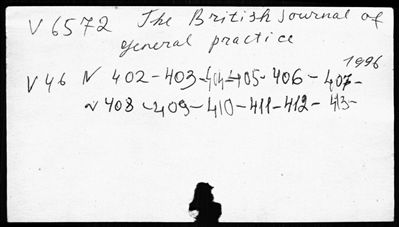 V 6572 The British Journal of
general practice
1996
V 46 N 402-403-404-405-406-407-
N 408-409-410-411-412-413-